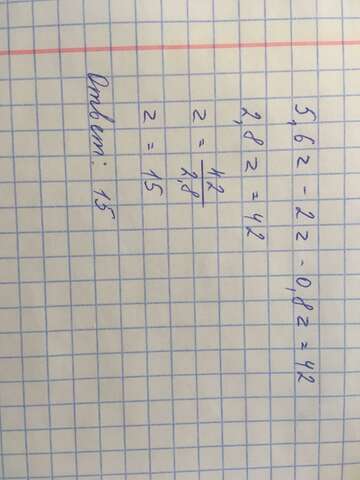 5,6z - 2z - 0,8z = 42
2,8z = 42
z = 42/2,8
z = 15
Ответ: 15